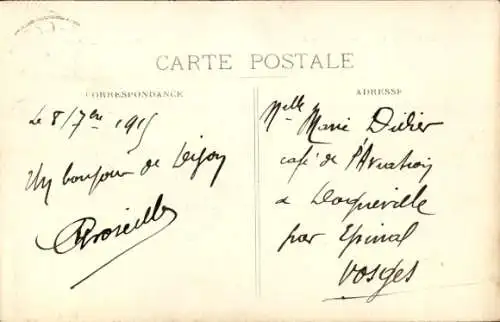 CARTE POSTALE
CORRESPONDANCE
Le 8/7ère 1915
Un bonjour de Dijon
ADRESSE
Melle Marie Didier
café de l'Aviation
à Dogneville
par Epinal
Vosges